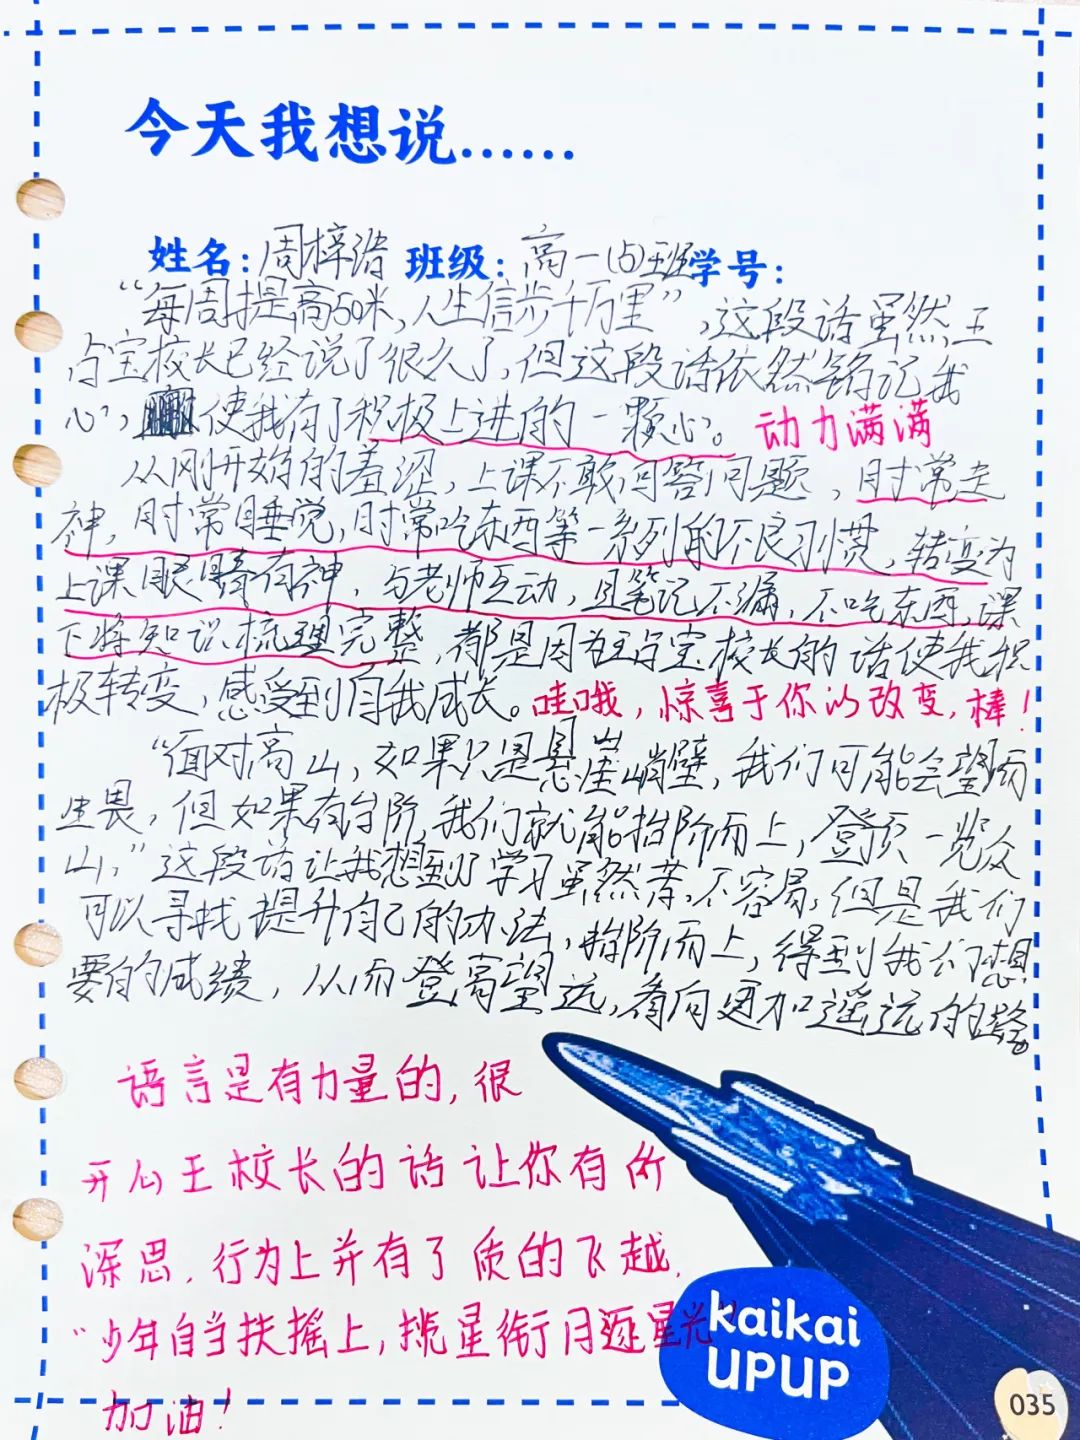 今天我想说……
姓名：周梓浩 班级：高一(5)班 学号：
“每周提高50米，人生信步千万里”，这段话虽然王
占宝校长已经说了很久了，但这段话依然铭记我
心，使我有了积极上进的一颗心。动力满满
从刚开始的羞涩，上课不敢回答问题，时常走
神，时常睡觉，时常吃东西等一系列的不良习惯，转变为
上课眼睛有神，与老师互动，且笔记不漏，不吃东西，课
下将知识梳理完整，都是因为王占宝校长的话使我积
极转变，感受到自我成长。哇哦，惊喜于你的改变，棒！
“面对高山，如果只是悬崖峭壁，我们可能会望而
生畏，但如果有台阶，我们就能拾阶而上，登顶一览众
山，”这段话让我想到了学习虽然苦，不容易，但是我们
可以寻找提升自己的办法，拾阶而上，得到我们想
要的成绩，从而登高望远，看向更加遥远的路。
语言是有力量的，很
开心王校长的话让你有所
深思，行为上并有了质的飞越，
“少年自当扶摇上，揽星衔月逐星光”
加油！
kaikai
UPUP
035